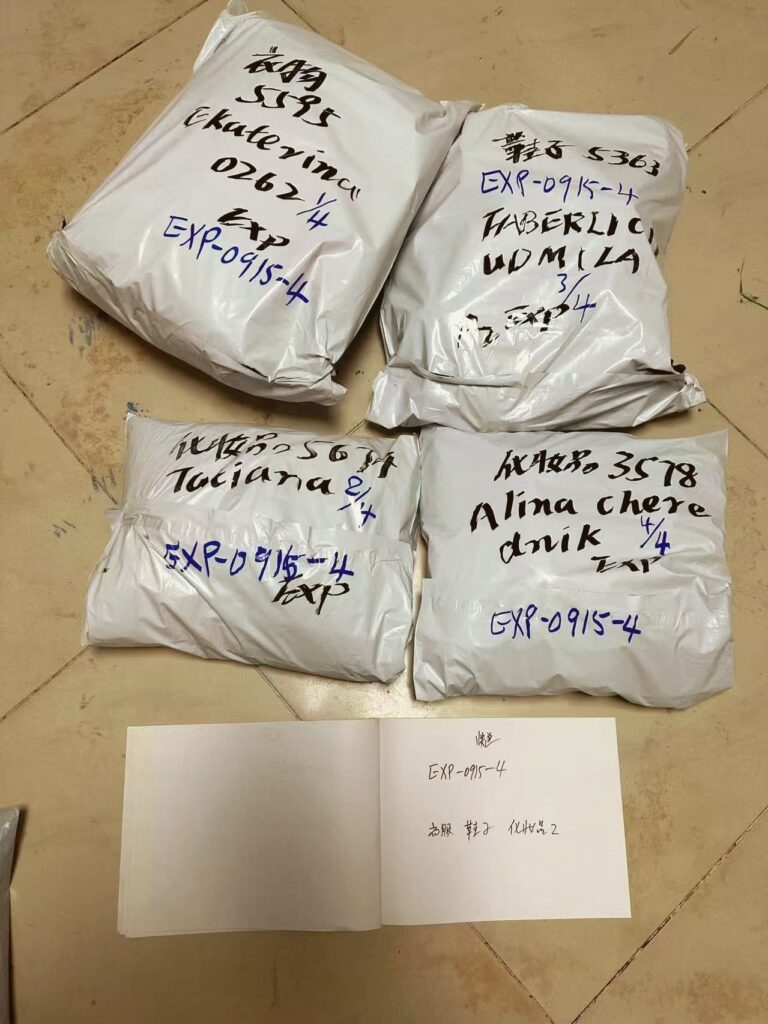 衣物
5595
Ekaterina
0262 1/4
EXP
EXP-0915-4
鞋子 5363
EXP-0915-4
FABERLIC
UDMILA
3/4
EXP
化妆品 5634
Taciana 2/4
EXP-0915-4
EXP
化妆品 3578
Alina chere
dnik 4/4
EXP
EXP-0915-4
快递
EXP-0915-4
衣服 鞋子 化妆品2